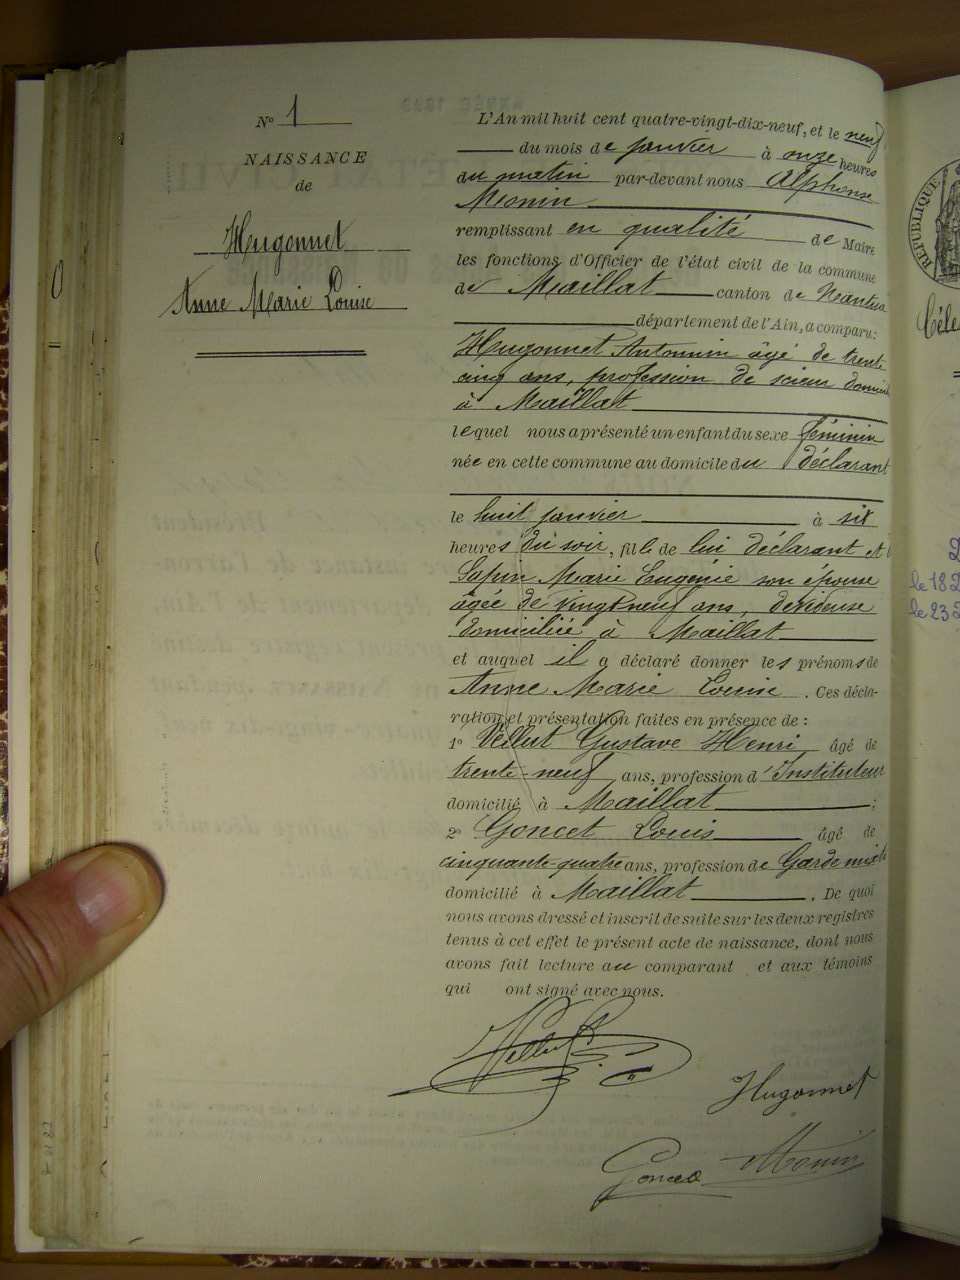 Nº 1
NAISSANCE
de
Hugonnet
Anne Marie Louise
L'An mil huit cent quatre-vingt-dix-neuf, et le neuf
du mois de janvier à onze heures
du matin par-devant nous Alphonse
Monin
remplissant en qualité de Maire
les fonctions d'Officier de l'état civil de la commune
de Maillat canton de Nantua
département de l'Ain, a comparu:
Hugonnet Antonin âgé de trente
cinq ans, profession de scieur domicilié
à Maillat
lequel nous a présenté un enfant du sexe féminin
née en cette commune au domicile du déclarant
le huit janvier à six
heures du soir, fille de lui déclarant et
Sapin Marie Eugénie son épouse
âgée de vingt neuf ans, dévideuse
domiciliée à Maillat
et auquel il a déclaré donner les prénoms de
Anne Marie Louise. Ces décla-
ration et présentation faites en présence de:
1º Vellut Gustave Henri, âgé de
trente-neuf ans, profession d'Instituteur
domicilié à Maillat;
2º Goncet Louis âgé de
cinquante-quatre ans, profession de Garde mixte
domicilié à Maillat. De quoi
nous avons dressé et inscrit de suite sur les deux registres
tenus à cet effet le présent acte de naissance, dont nous
avons fait lecture au comparant et aux témoins
qui ont signé avec nous.
Vellut
Hugonnet
Goncet Monin
RÉPUBLIQUE
le 18
le 23